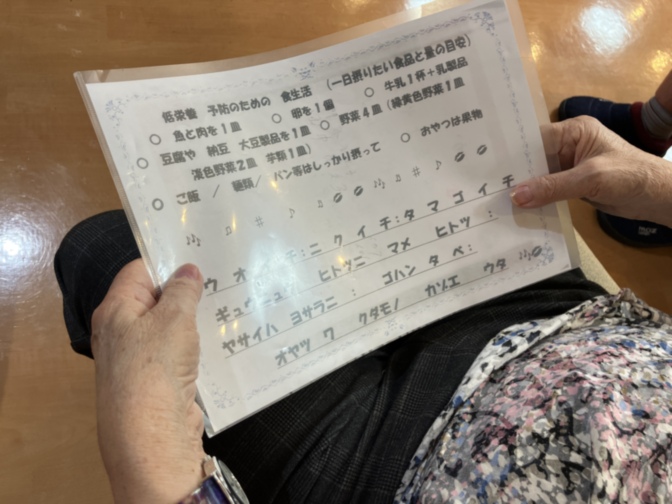 低栄養 予防のための 食生活 (一日摂りたい食品と量の目安)
○ 魚と肉を1皿 ○ 卵を1個 ○ 牛乳1杯+乳製品
○ 豆腐や 納豆 大豆製品を1皿 ○ 野菜4皿(緑黄色野菜1皿
淡色野菜2皿 芋類1皿)
○ ご飯 / 麺類/ パン等はしっかり摂って ○ おやつは果物
ウオ チ:ニクイチ:タマゴイチ
ギュウニュ ヒトツニ マメ ヒトツ:
ヤサイハ ヨサラニ: ゴハン タベ:
オヤツワ クダモノ カゾエ ウタ